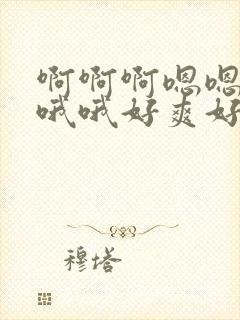 啊啊啊嗯嗯
哦哦好爽好
穆塔